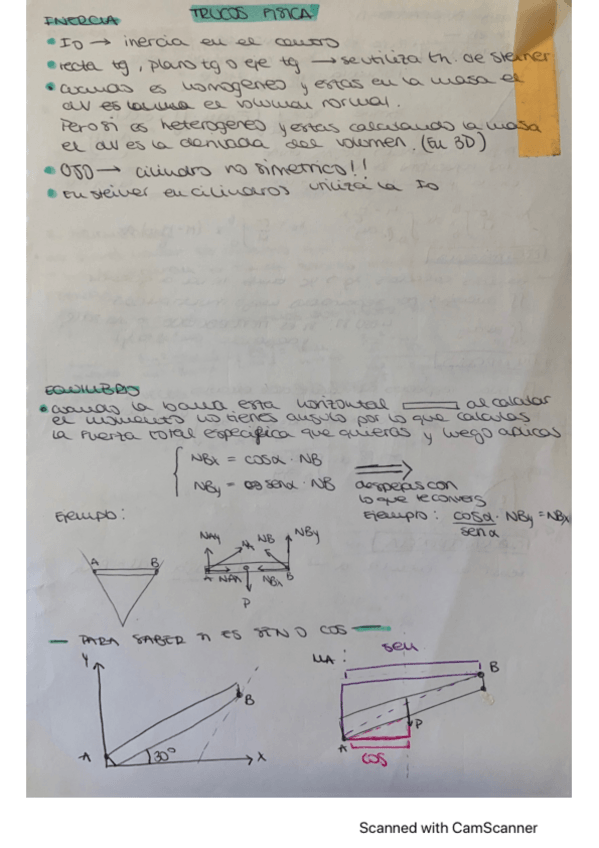 TRUCOS FISICA
INERCIA
• Io → inercia en el centro
• recta tg, plano tg o eje tg → se utiliza th. de steiner
• cuando es homogeneo y estas en la masa el
dV es el volumen normal.
Pero si es heterogeneo y estas calculando la masa
el dV es la derivada del volumen. (En 3D)
• OJO → cilindro no simetrico!!
• En steiner en cilindros utiliza la Io
EQUILIBRO
• cuando la barra esta horizontal al calcular
el momento no tienes angulo por lo que calculas
la fuerza total especifica que quieras y luego aplicas
NBx = cosα · NB
NBy = senα · NB
despejas con
lo que te convers
Ejemplo:
Ejemplo: cosα/senα · NBy = NBx
A B
NAy NA NB NBy
A NAx NBx B
P
— PARA SABER SI ES SEN O COS —
Y
A
B
30°
X
LLA:
sen
B
A
P
cos
Scanned with CamScanner